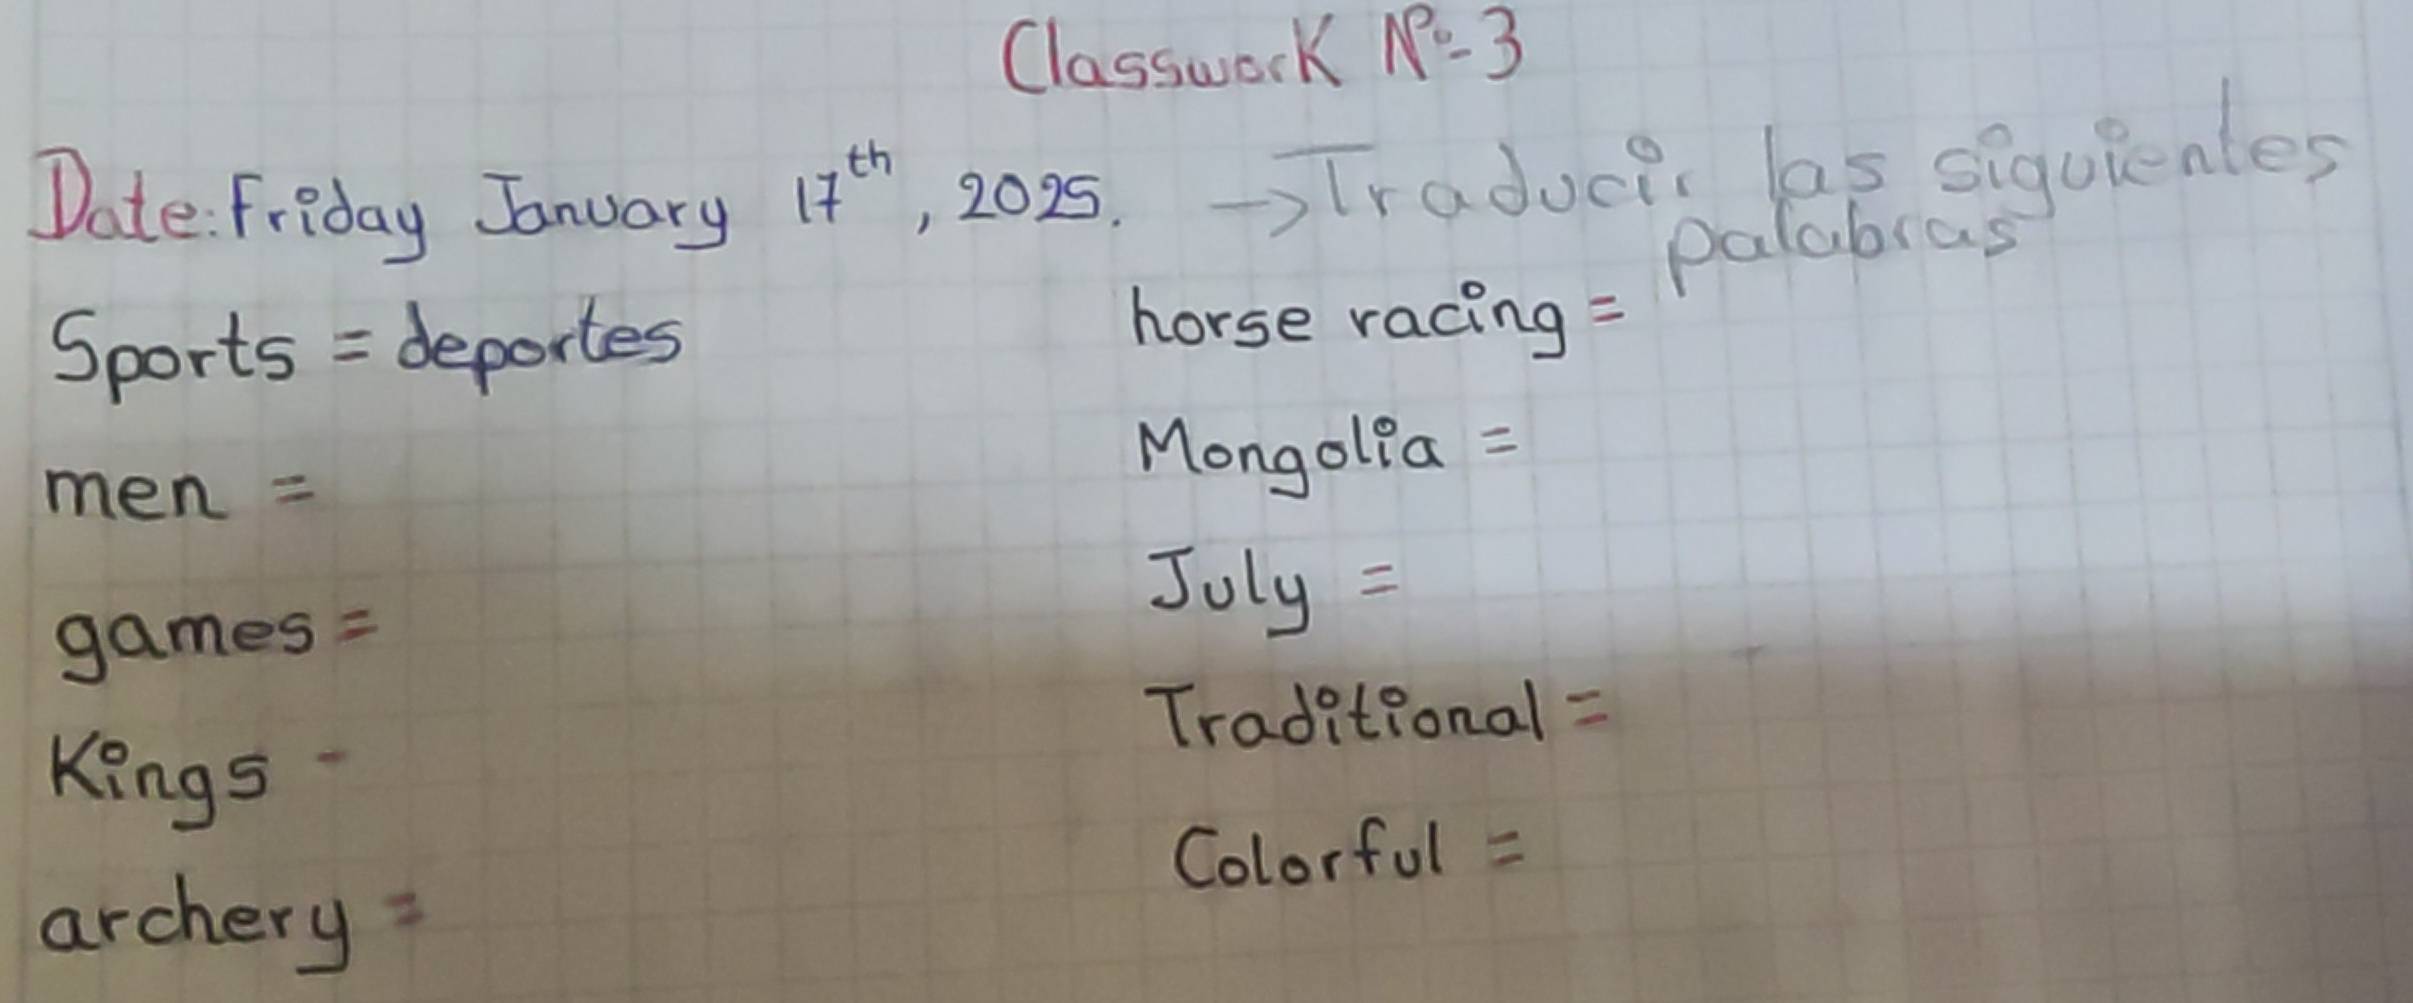 Classwork Nº-3
Date: Friday January 17th, 2025. → Traducir las siguientes
palabras
Sports = deportes
men =
games =
Kings -
archery =
horse racing =
Mongolia =
July =
Traditional =
Colorful =